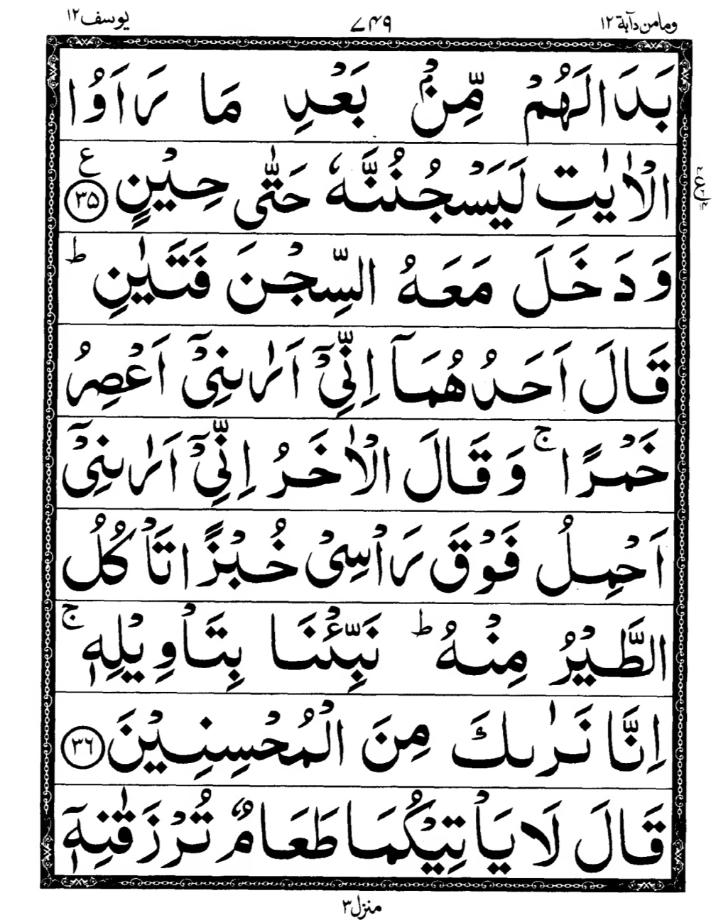 يوسف ١٢ ٧٤٩ ومامن دآبة ١٢
بَدَالَهُمْ مِّنْۢ بَعْدِ مَا رَاَوُا
الْاٰيٰتِ لَيَسْجُنُنَّهٗ حَتّٰى حِيْنٍ ع ۳۵
وَدَخَلَ مَعَهُ السِّجْنَ فَتَيٰنِ ؕ
قَالَ اَحَدُهُمَاۤ اِنِّىْۤ اَرٰىنِىْۤ اَعْصِرُ
خَمْرًا ۚ وَقَالَ الْاٰخَرُ اِنِّىْۤ اَرٰىنِىْۤ
اَحْمِلُ فَوْقَ رَاْسِىْ خُبْزًا تَاْكُلُ
الطَّيْرُ مِنْهُ ؕ نَبِّئْنَا بِتَاْوِيْلِهٖ ۚ
اِنَّا نَرٰىكَ مِنَ الْمُحْسِنِيْنَ ۳۶
قَالَ لَا يَاْتِيْكُمَا طَعَامٌ تُرْزَقٰنِهٖۤ
منزل ۳